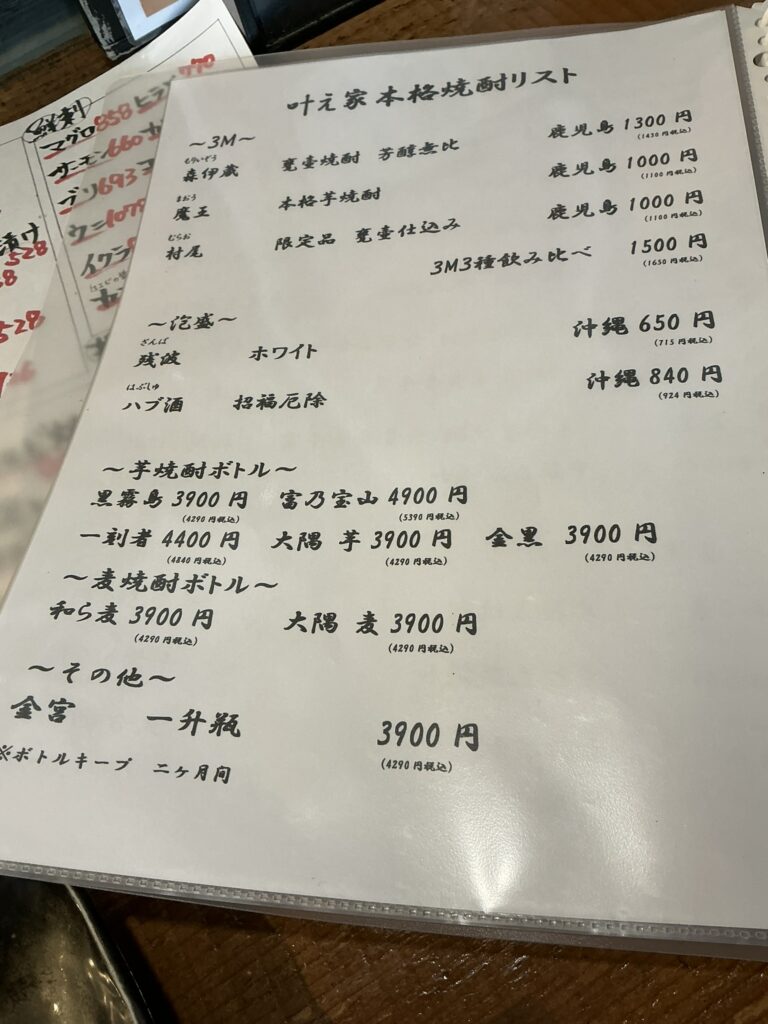 叶え家 本格焼酎リスト
～3M～
もりいぞう
森伊蔵 甕壷焼酎 芳醇無比 鹿児島 1300 円
(1430円税込)
まおう
魔王 本格芋焼酎 鹿児島 1000 円
(1100円税込)
むらお
村尾 限定品 甕壷仕込み 鹿児島 1000 円
(1100円税込)
3M3種飲み比べ 1500 円
(1650円税込)
～泡盛～
ざんぱ
残波 ホワイト 沖縄 650 円
(715円税込)
はぶしゅ
ハブ酒 招福厄除 沖縄 840 円
(924円税込)
～芋焼酎ボトル～
黒霧島 3900 円 富乃宝山 4900 円
(4290円税込) (5390円税込)
一刻者 4400 円 大隅 芋 3900 円 金黒 3900 円
(4840円税込) (4290円税込) (4290円税込)
～麦焼酎ボトル～
和ら麦 3900 円 大隅 麦 3900 円
(4290円税込) (4290円税込)
～その他～
金宮 一升瓶 3900 円
(4290円税込)
※ボトルキープ 二ヶ月間
鮮刺
マグロ858 ヒラメ770
サーモン660
ブリ693
ウニ1078
イクラ
漬け
528
528